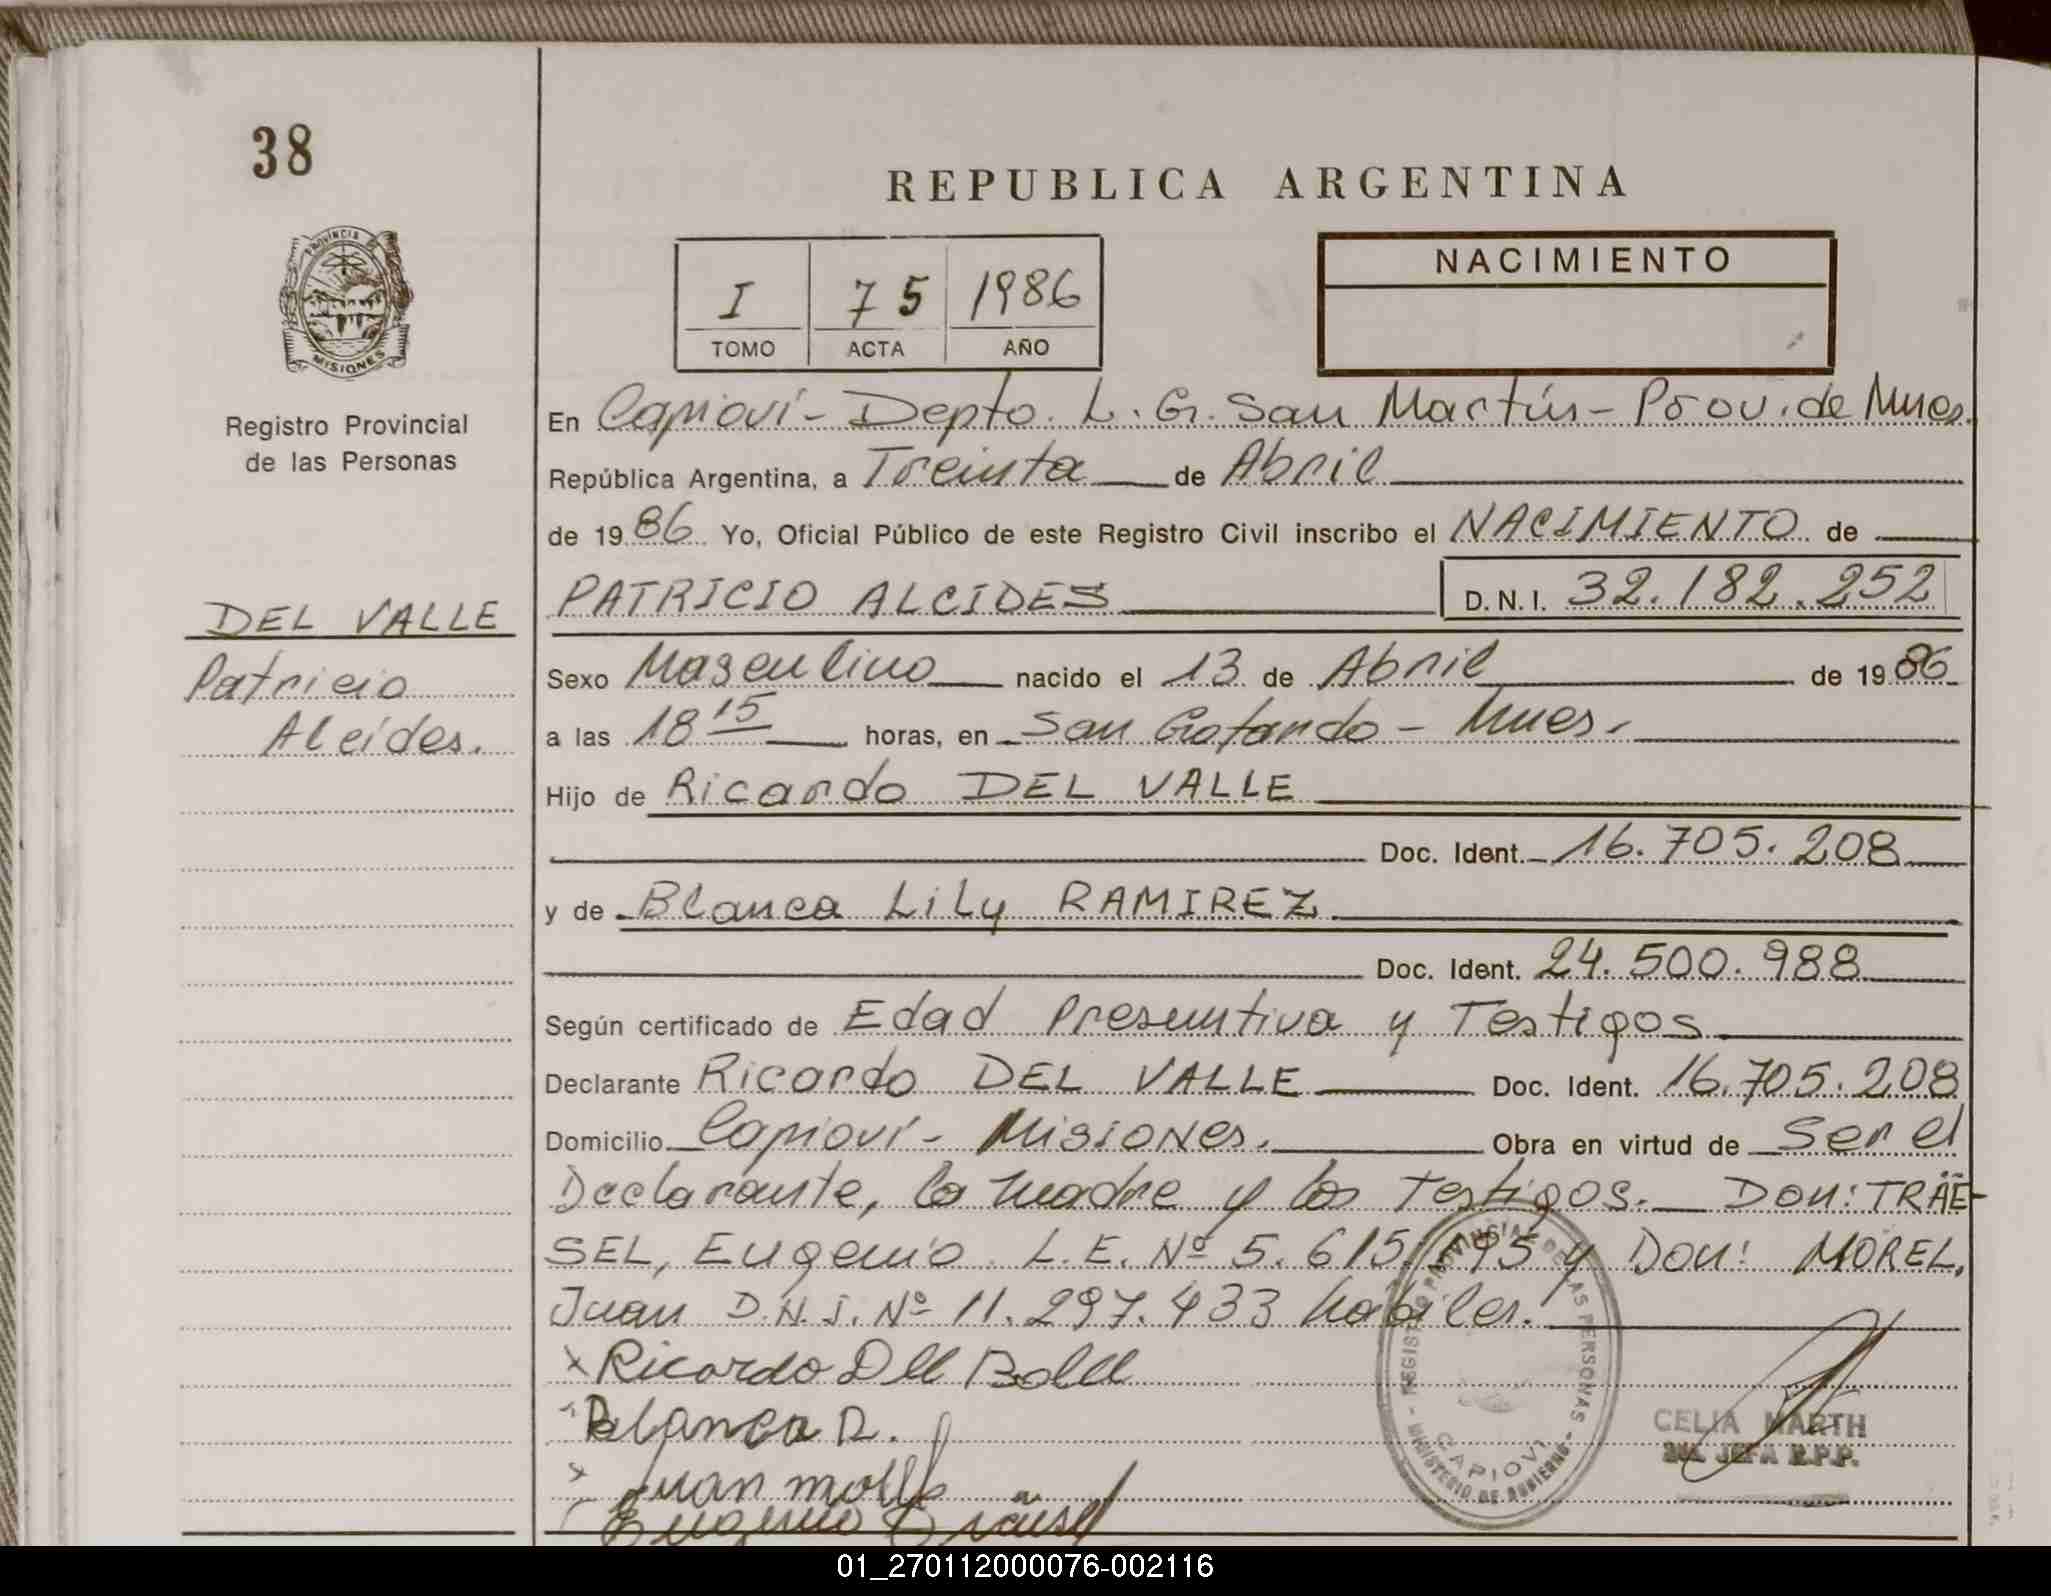 38
REPUBLICA ARGENTINA
PROVINCIA DE
MISIONES
Registro Provincial
de las Personas
I 75 1986
TOMO ACTA AÑO
NACIMIENTO
En Capioví - Depto. L. G. San Martín - Prov. de Mnes.
República Argentina, a Treinta de Abril
de 1986 Yo, Oficial Público de este Registro Civil inscribo el NACIMIENTO de
DEL VALLE
Patricio
Alcides.
PATRICIO ALCIDES D.N.I. 32.182.252
Sexo Masculino nacido el 13 de Abril de 1986
a las 18 15 horas, en San Gotardo - Mnes.
Hijo de Ricardo DEL VALLE
Doc. Ident. 16.705.208
y de Blanca Lily RAMIREZ
Doc. Ident. 24.500.988
Según certificado de Edad Presuntiva y Testigos
Declarante Ricardo DEL VALLE Doc. Ident. 16.705.208
Domicilio Capioví - Misiones. Obra en virtud de Ser el
Declarante, la madre y los Testigos. Don: TRÄE-
SEL, Eugenio L.E. Nº 5.615.195 y Don: MOREL,
Juan D.N.I. Nº 11.297.433 habiles.
x Ricardo Del Balle
Blanca R.
x Juan
Eugenio Träesel
REGISTRO PROVINCIAL DE LAS PERSONAS - MINISTERIO DE GOBIERNO -
CAPIOVI
CELIA MARTH
JEFA R.P.P.
01_270112000076-002116